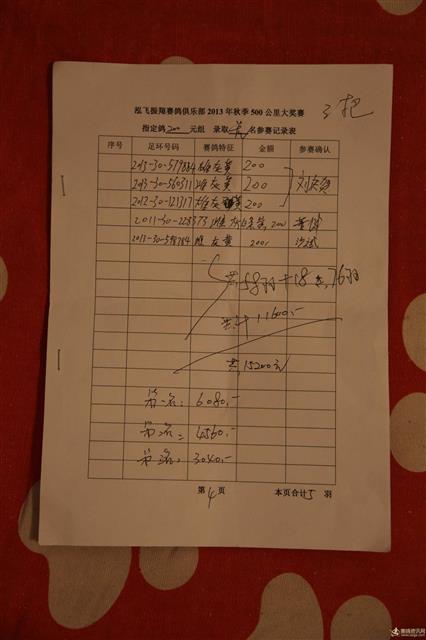 泓飞振翔赛鸽俱乐部2013年秋季500公里大奖赛
指定鸽200元组 录取 名参赛记录表
序号 足环号码 赛鸽特征 金额 参赛确认
2013-30-579884 雄灰黄 200
2013-30-560311 雄灰黄 200
2012-30-121317 雄灰 黄 200
2011-30-228373 雄 200
2013-30-598784 雌灰黄 200
共58羽+18 76羽
共计11600.-
共15200元
第一名：6080.-
第二名：4560.-
第三名：3040.-
第4页 本页合计5羽
赛鸽资讯网